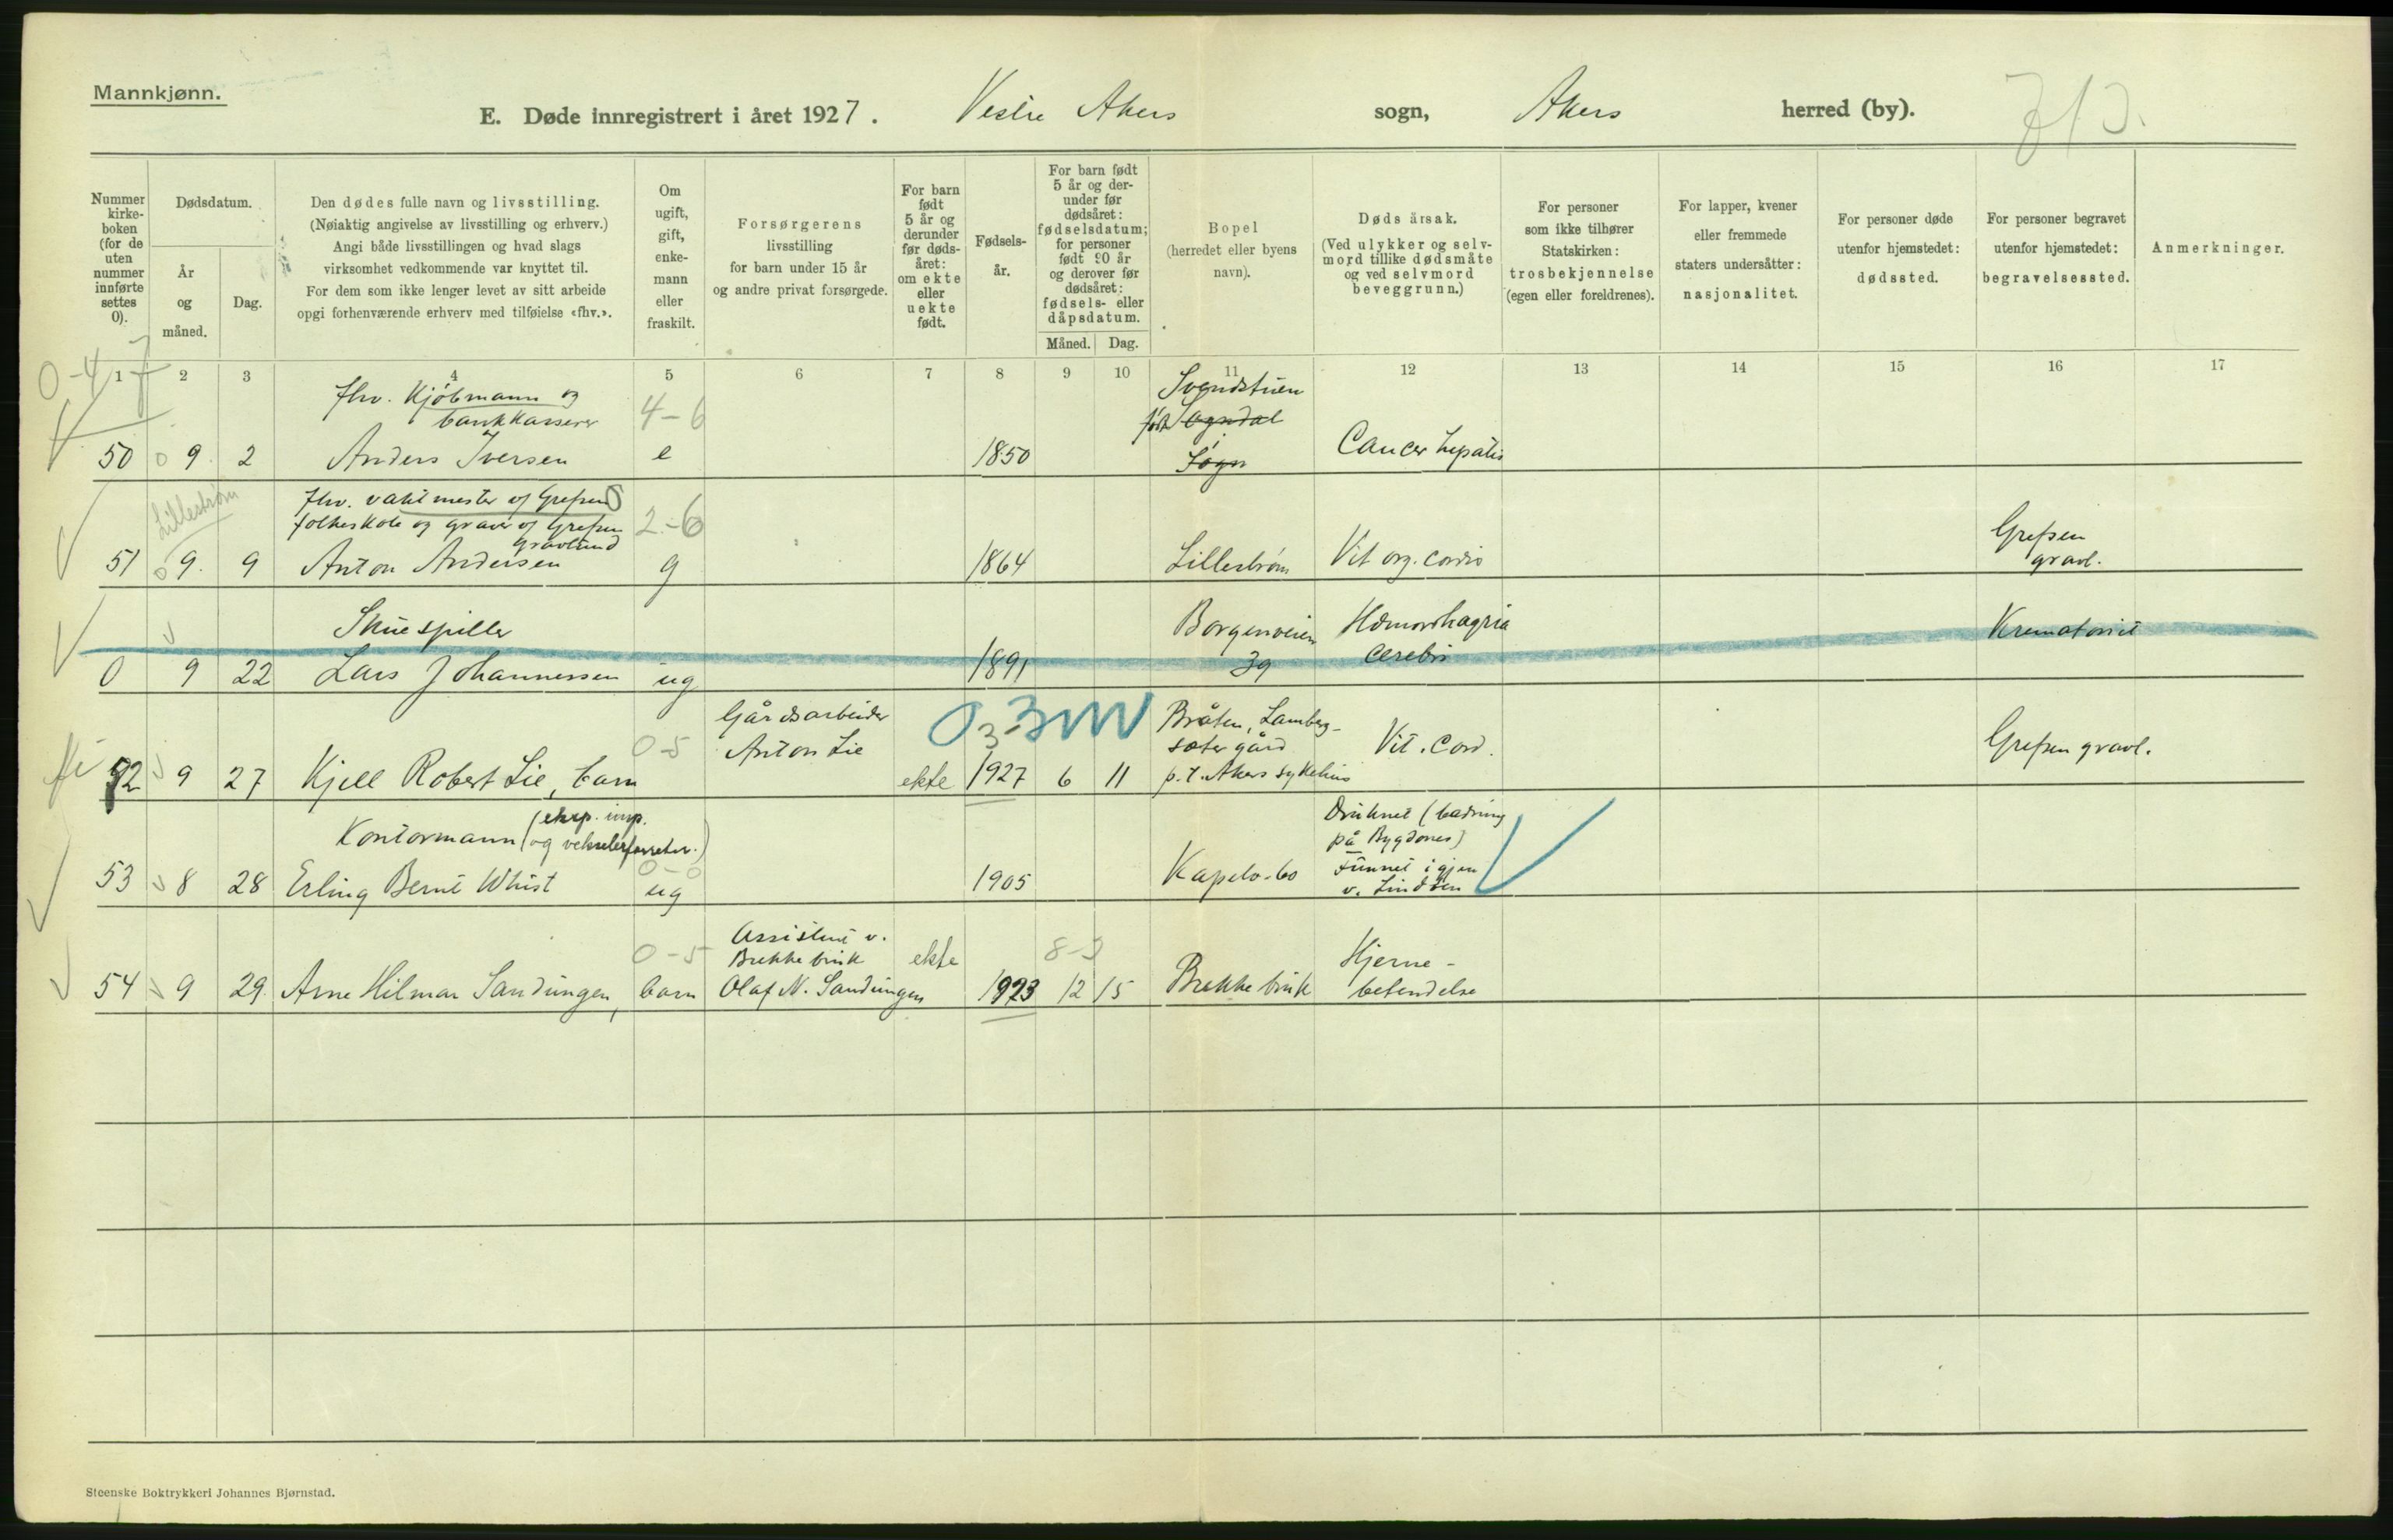 Mannkjønn.
E. Døde innregistrert i året 1927. Vestre Akers sogn, Akers herred (by).
Nummer kirke-boken (for de uten nummer innførte settes 0).
Dødsdatum.
År og måned.
Dag.
Den dødes fulle navn og livsstilling.
(Nøiaktig angivelse av livsstilling og erhverv.)
Angi både livsstillingen og hvad slags
virksomhet vedkommende var knyttet til.
For dem som ikke lenger levet av sitt arbeide
opgi forhenværende erhverv med tilføielse «fhv.».
Om ugift, gift, enke-mann eller fraskilt.
Forsørgerens
livsstilling
for barn under 15 år
og andre privat forsørgede.
For barn født 5 år og derunder før døds-året: om ekte eller uekte født.
Fødsels-år.
For barn født 5 år og der-under før dødsåret: fødselsdatum; for personer født 90 år og derover før dødsåret: fødsels- eller dåpsdatum.
Måned.
Dag.
Bopel
(herredet eller byens
navn).
Dødsårsak.
(Ved ulykker og selv-
mord tillike dødsmåte
og ved selvmord
beveggrunn.)
For personer
som ikke tilhører
Statskirken:
trosbekjennelse
(egen eller foreldrenes).
For lapper, kvener
eller fremmede
staters undersåtter:
nasjonalitet.
For personer døde
utenfor hjemstedet:
dødssted.
For personer begravet
utenfor hjemstedet:
begravelsessted.
Anmerkninger.
0-4
1 2 3 4 5 6 7 8 9 10 11 12 13 14 15 16 17
fhv. Kjøbmann og
bankkasserer
4-6
Svendstuen
Sogndal
Sogn
50 0 9 2 Anders Iversen e 1850 Cancer hepatis
Lillestrøm
fhv. vaktmester v/ Grefsen
folkeskole og graver v/ Grefsen
gravlund
2-6
51 0 9. 9 Anton Andersen g 1864 Lillestrøm Vit org. cordis
Grefsen
gravl.
Skuespiller
Borgenveien
39
Hæmorrhagia
cerebri
Krematoriet
0 9 22 Lars Johannessen ug 1891
0-5
Gårdsarbeider
Anton Lie
0-3 M
Bråten, Lamberg-
sæter gård
p.t. Akers sykehus
Vit. Cord.
Grefsen gravl.
52 9 27 Kjell Robert Lie, barn ekte 1927 6 11
Kontormann (eksp. insp.
og
0-0
Druknet (badning
på Bygdønes)
Funnet igjen
v. Lindøen
53 8 28 Erling Bernt Whist ug 1905 Kapelv. 60
0-5
Assistent v.
Brekke bruk
Olaf N. Sandungen
ekte
8-3
Hjerne-
betendelse
54 9 29. Arne Hilmar Sandungen, barn 1923 12 15 Brekke bruk
Steenske Boktrykkeri Johannes Bjørnstad.